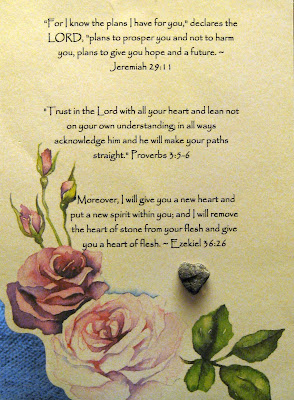 "For I know the plans I have for you," declares the
LORD, "plans to prosper you and not to harm
you, plans to give you hope and a future. ~
Jeremiah 29:11
"Trust in the Lord with all your heart and lean not
on your own understanding; in all ways
acknowledge him and he will make your paths
straight." Proverbs 3:5-6
"Moreover, I will give you a new heart and
put a new spirit within you; and I will remove
the heart of stone from your flesh and give
you a heart of flesh. ~ Ezekiel 36:26